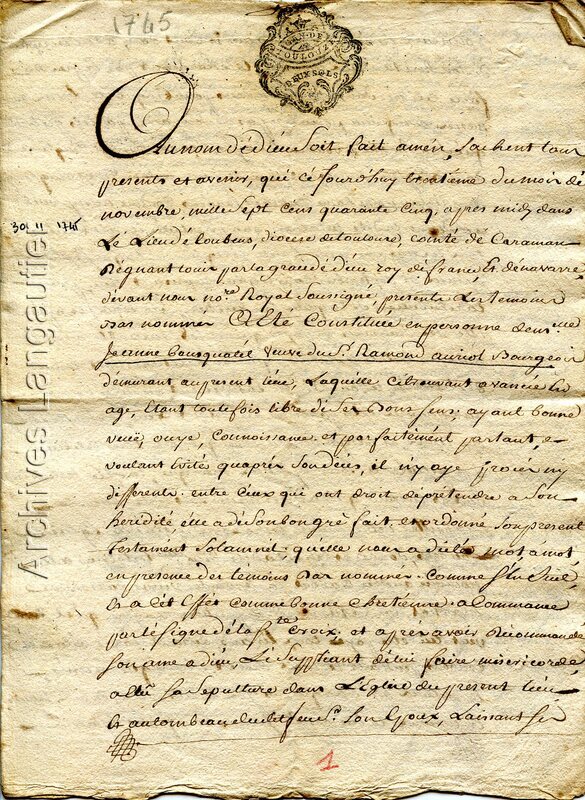 1745
GN. DE
TOULOUZE
DEUX SOLS
Au nom dé dieu soit fait amen, sachent tous
presents et avenir, qué cé Jourd'huy trentiéme du mois dé
novembre, mille sept cens quarante cinq, apres midy dans
30 11 1745
Le Lieu dé Loubens, diocese de toulouse, comté dé Caraman
Régnant Louis par la grace dé dieu roy dé france Et dénavarre
dévant nous no.re Royal soussigné, presents Les temoins
bas nommés A Eté Constituée en personne dem.lle
Jeanne bousquatél veuve du S.r Ramond auriol Bourgeois
démurant au present Lieu, Laquélle cé trouvant avancée En
age, Etant toutefois libre dé ses bons sens. ayant bonne
veüe, ouye, connoissance et parfaitément parlant, e
voulant Evité qu'aprés son décés, il n'y aye procés ny
differents entre Ceux qui ont droit dé prétendre a son
heridité élle a dé son bon gré fait, et ordonné son present
testament solamnél quélle nous a dicté mot a mot,
en presence des témoins bas nommés comme s'En suit
Et a cét Effét comme bonne chretienne a Commancé
par lé signe dé la s.te Croix. et apres avoir Récommandé
son ame a dieu, Lé suppliant dé lui faire misericorde,
a Elleu sa sepulture dans L'Eglise du present Lieu
Et au tombeau dudit feu s.r son Epoux, Laissant ses
1
Archives Langautier